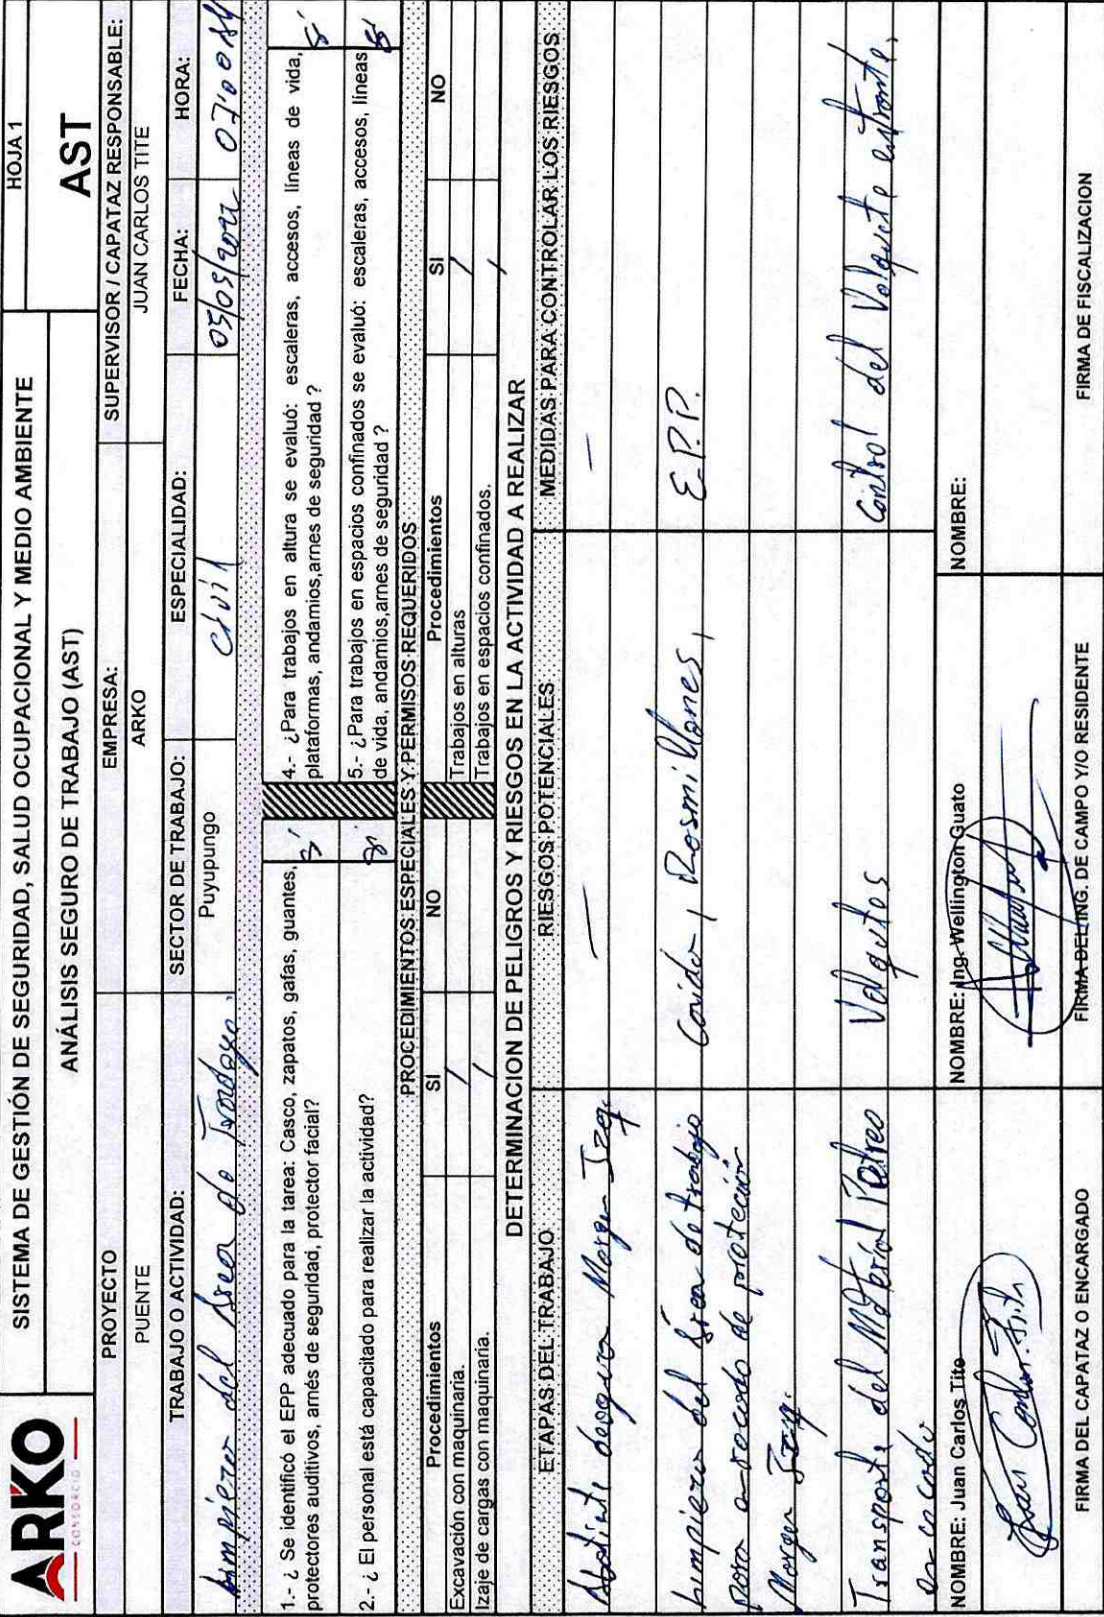 ARKO
CONSORCIO
SISTEMA DE GESTIÓN DE SEGURIDAD, SALUD OCUPACIONAL Y MEDIO AMBIENTE
HOJA 1
ANÁLISIS SEGURO DE TRABAJO (AST)
AST
PROYECTO
EMPRESA:
SUPERVISOR / CAPATAZ RESPONSABLE:
PUENTE
ARKO
JUAN CARLOS TITE
TRABAJO O ACTIVIDAD:
SECTOR DE TRABAJO:
ESPECIALIDAD:
FECHA:
HORA:
Limpieza del Area de Trabajo.
Puyupungo
Civil
05/05/2022
07:00 AM
1.- ¿ Se identificó el EPP adecuado para la tarea: Casco, zapatos, gafas, guantes,
protectores auditivos, arnés de seguridad, protector facial?
si
4.- ¿Para trabajos en altura se evaluó: escaleras, accesos, líneas de vida,
plataformas, andamios,arnes de seguridad ?
si
2.- ¿ El personal está capacitado para realizar la actividad?
si
5.- ¿Para trabajos en espacios confinados se evaluó: escaleras, accesos, líneas
de vida, andamios,arnes de seguridad ?
si
PROCEDIMIENTOS ESPECIALES Y PERMISOS REQUERIDOS
Procedimientos
SI
NO
Procedimientos
SI
NO
Excavación con maquinaria.
/
Trabajos en alturas
/
Izaje de cargas con maquinaria.
/
Trabajos en espacios confinados.
/
DETERMINACION DE PELIGROS Y RIESGOS EN LA ACTIVIDAD A REALIZAR
ETAPAS DEL TRABAJO
RIESGOS POTENCIALES
MEDIDAS PARA CONTROLAR LOS RIESGOS
Margen Izq.
—
—
Limpieza del Area de trabajo
Caida,
E.P.P.
para de protección
Margen Izq.
Transporte del Material Petreo
Volquetes
Control del Volquete entrante.
NOMBRE: Juan Carlos Tite
NOMBRE: Ing. Wellington Guato
NOMBRE:
FIRMA DEL CAPATAZ O ENCARGADO
FIRMA DEL ING. DE CAMPO Y/O RESIDENTE
FIRMA DE FISCALIZACION